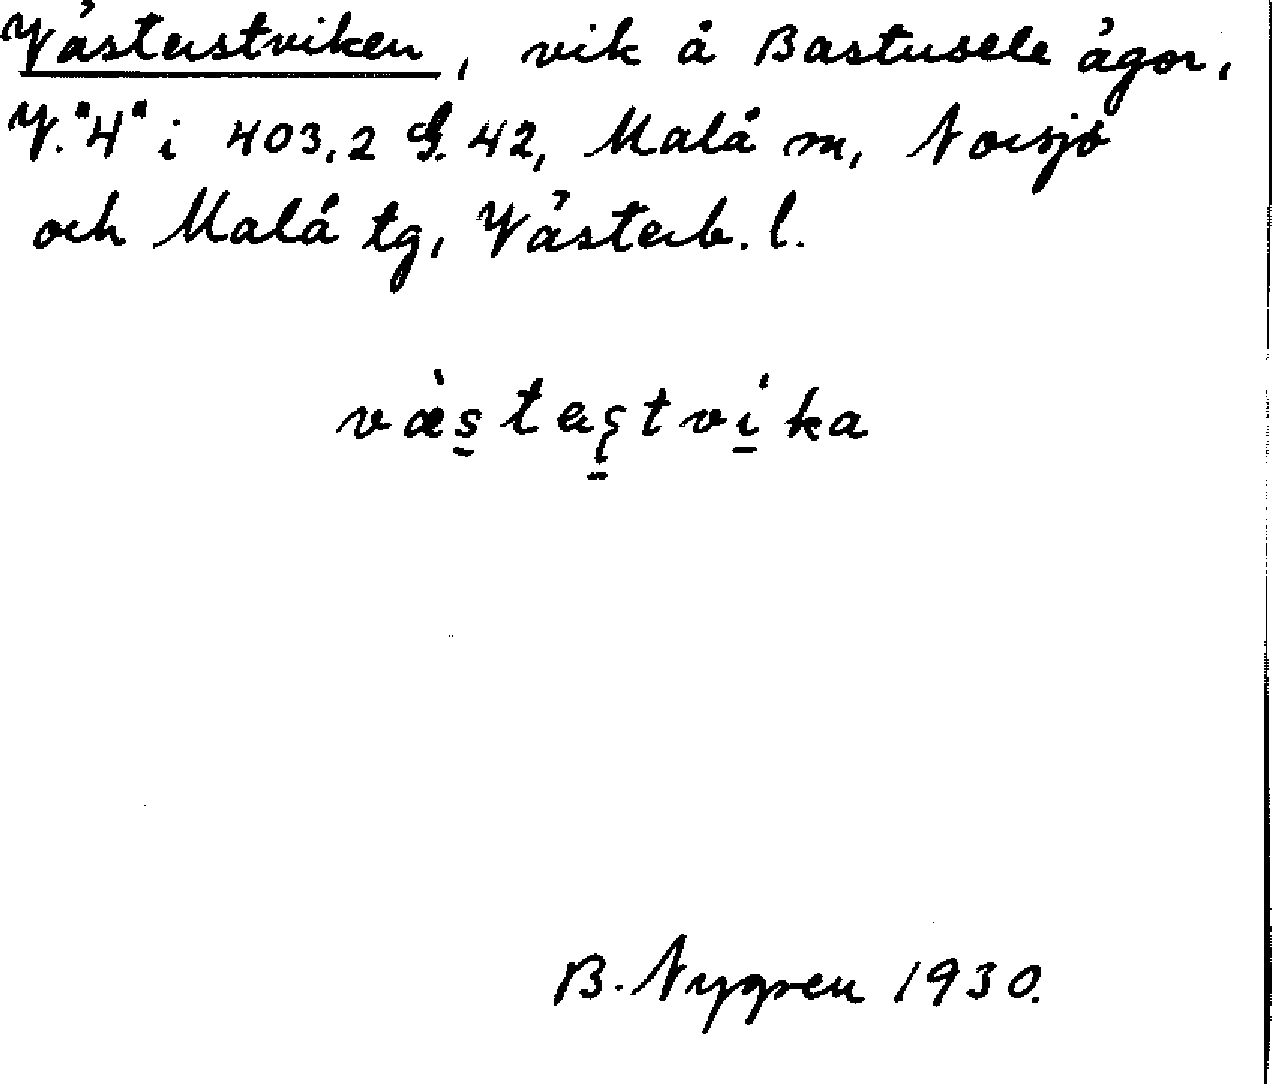 Västerstviken, vik å Bastusele ägor,
V. "4" i 403,2 G. 42, Malå m, Norsjö
och Malå tg, Västerb. l.
væ̀s̱tεʂtvi̱ka
B. Nygren 1930.